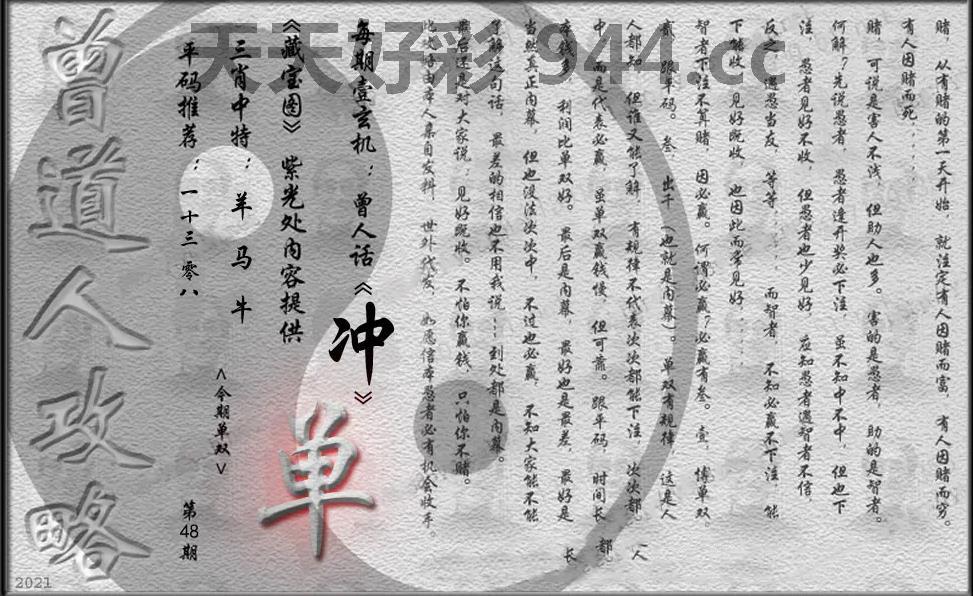 天天好彩 944.cc
赌，从有赌的第一天开始，就注定有人因赌而富，有人因赌而穷。
有人因赌而死……
赌，可说是害人不浅，但助人也多。害的是愚者，助的是智者。
何解？先说愚者，愚者逢开奖必下注，虽不知中不中，但也下
注，愚者见好不收，但愚者也少见好，应知愚者遇智者不信，
反之，遇愚当友，等等……而智者，不知必赢不下注，能
下能收，见好既收，也因此而常见好……
智者下注不算赌，因必赢。何谓必赢？必赢有叁。壹，博单双。
贰，跟单码。叁，出千（也就是内幕）。单双有规律，这是人
人都知，但谁又能了解，有规律不代表次次都能下注，次次都
中，而是代表必赢，虽单双赢钱慢，但可靠。跟单码，时间长，都
本钱多，利润比单双好。最后是内幕，最好也是最差，最好是
当然真正内幕，但也没法次次中，不过也必赢，不知大家能不能
了解这句话，最差的相信也不用我说……到处都是内幕。
最后还是对大家说，见好既收。不怕你赢钱，只怕你不赌。
此攻略由本人亲自发料，世外代发，如愿信本愚者必有机会收手。
一人
长
每期壹玄机：曾人话《冲》
《藏宝图》紫光处内容提供
三肖中特：羊 马 牛
平码推荐：一十三 零八
<今期单双>
单
第48期
曾道人攻略
2021